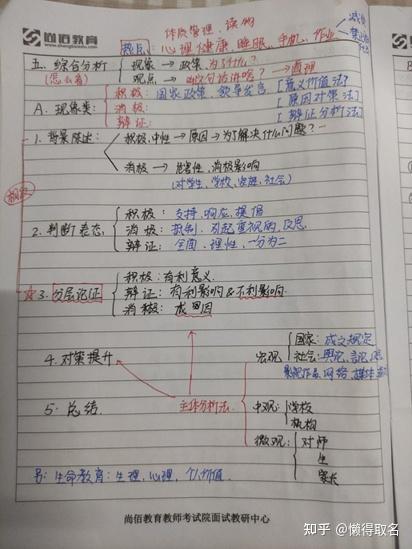 尚佰教育
体质管理、读物
热点：心理健康、睡眠、手机、作业
五、综合分析 现象 → 政策 为什么?
(怎么看) 观点 → 道理
A. 现象类: 积极: 国家政策、领导发言 [意义价值法]
消极: [原因对策法]
辩证: [辩证分析法]
1. 背景陈述: 积极,中性 → 原因 → 为了解决什么问题?
消极 → 危害性、消极影响
(对学生、学校、家庭、社会)
概念
2. 判断表态 积极: 支持、响应、提倡
消极: 抵制、引起重视的、反思
辩证: 全面、理性、一分为二
3. 分层论证 积极: 有利意义
辩证: 有利影响&不利影响
消极: 成因
4. 对策提升
宏观: 国家: 成文规定
社会: 舆论、
网络、媒体
5. 总结
主体分析法
中观: 学校
机构
微观: 对师
生
家长
生命教育: 生理、心理、个人价值
尚佰教育教师考试院面试教研中心
知乎 @懒得取名